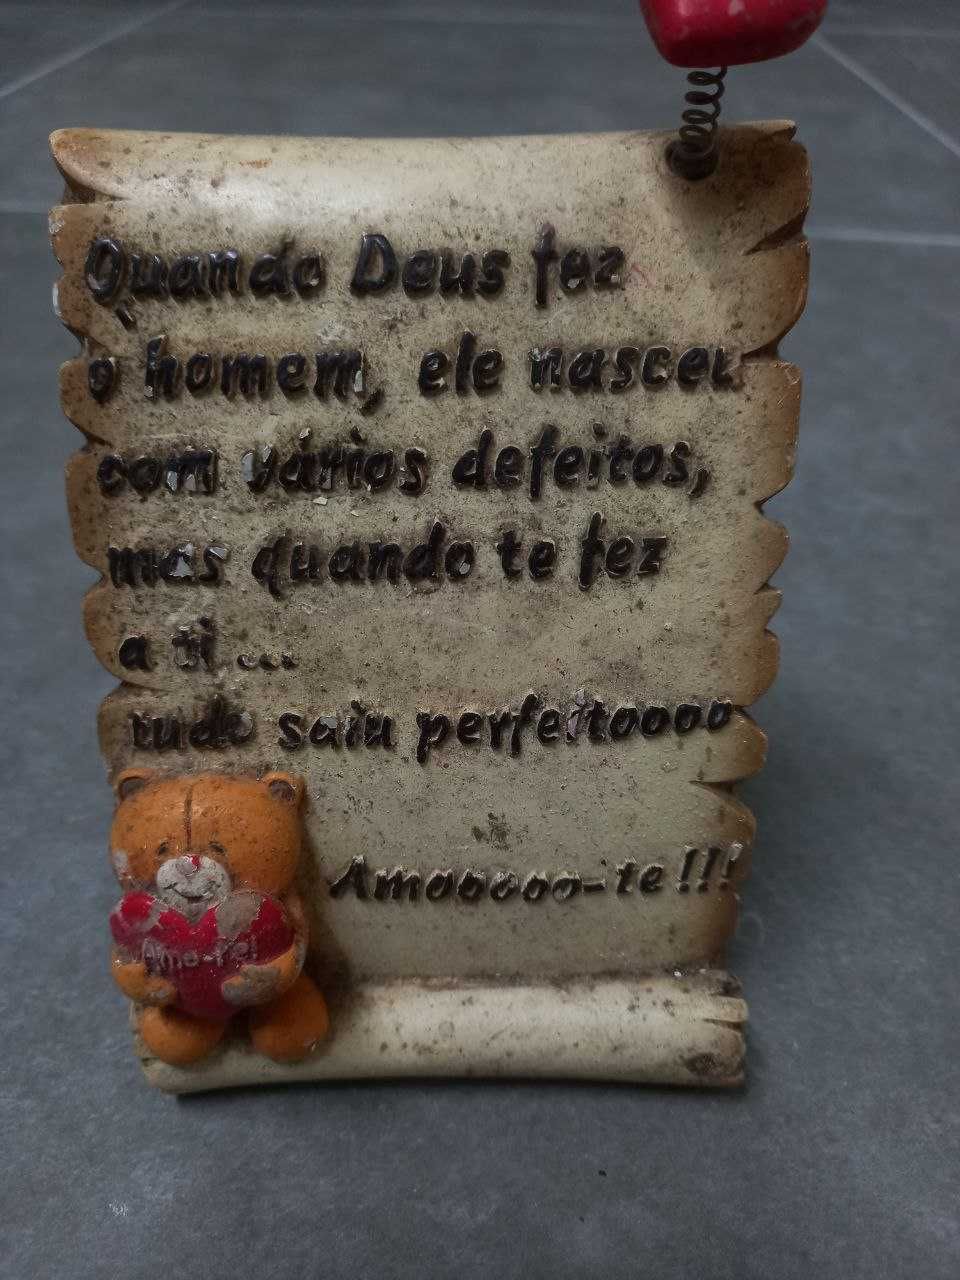 Quando Deus fez
o homem, ele nasceu
com vários defeitos,
mas quando te fez
a ti...
tudo saiu perfeitoooo
Amoooooo-te!!!
Amo-te!